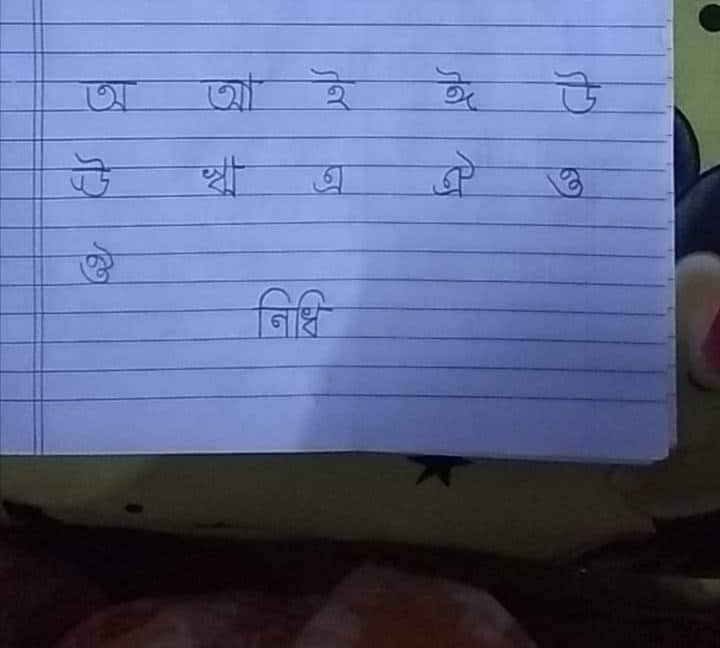 অ আ ই ঈ উ
ঊ ঋ এ ঐ ও
ঔ
নিধি